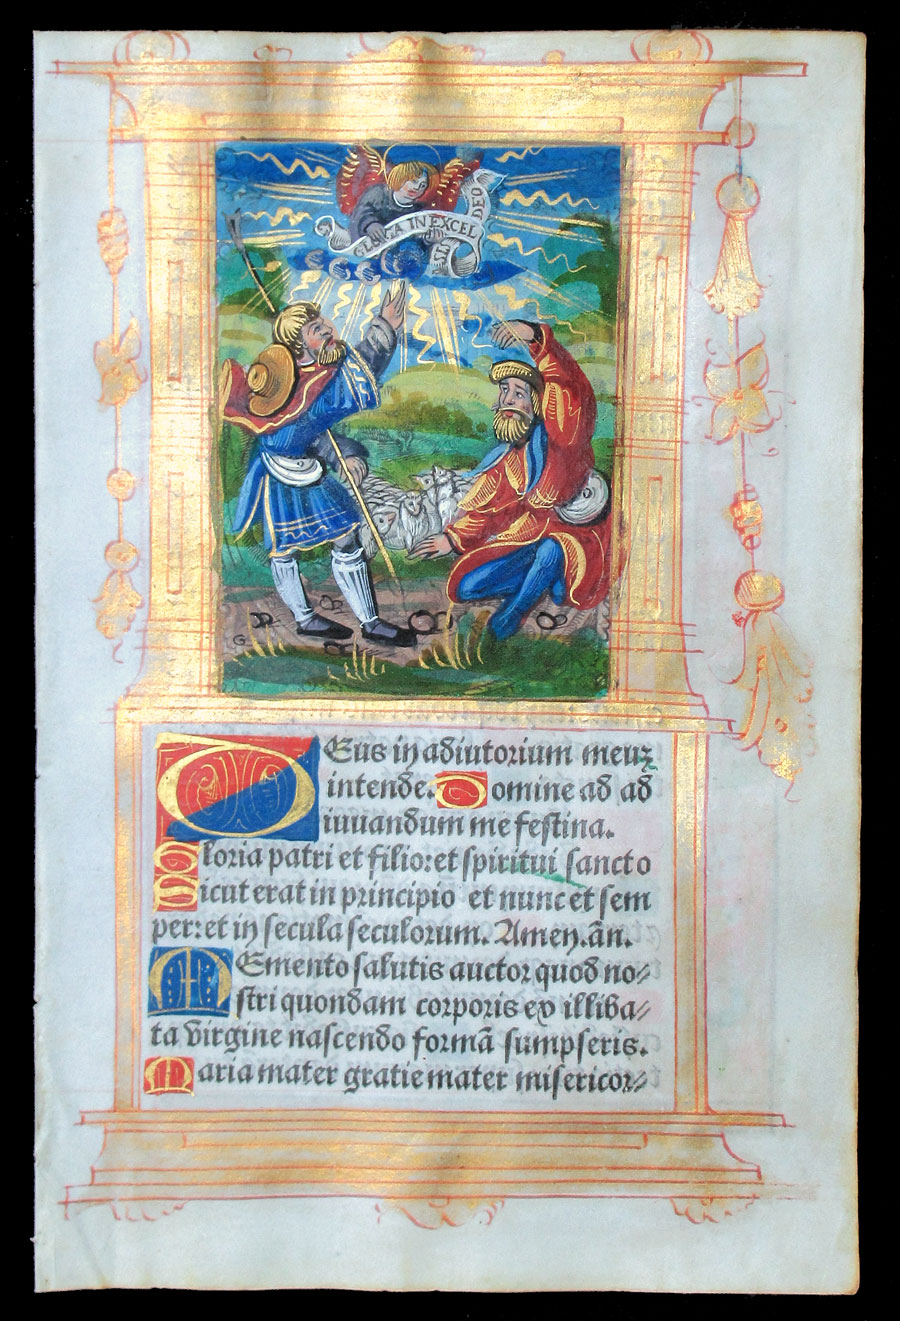 GLORIA IN EXCELSIS DEO
G
Deus in adiutorium meuz
intende. Domine ad ad
iuuandum me festina.
Gloria patri et filio: et spiritui sancto
Sicut erat in principio et nunc et sem
per: et in secula seculorum. Amen. ān.
Memento salutis auctor quod no⸗
stri quondam corporis ex illiba⸗
ta virgine nascendo formā sumpseris.
Maria mater gratie mater misericor⸗